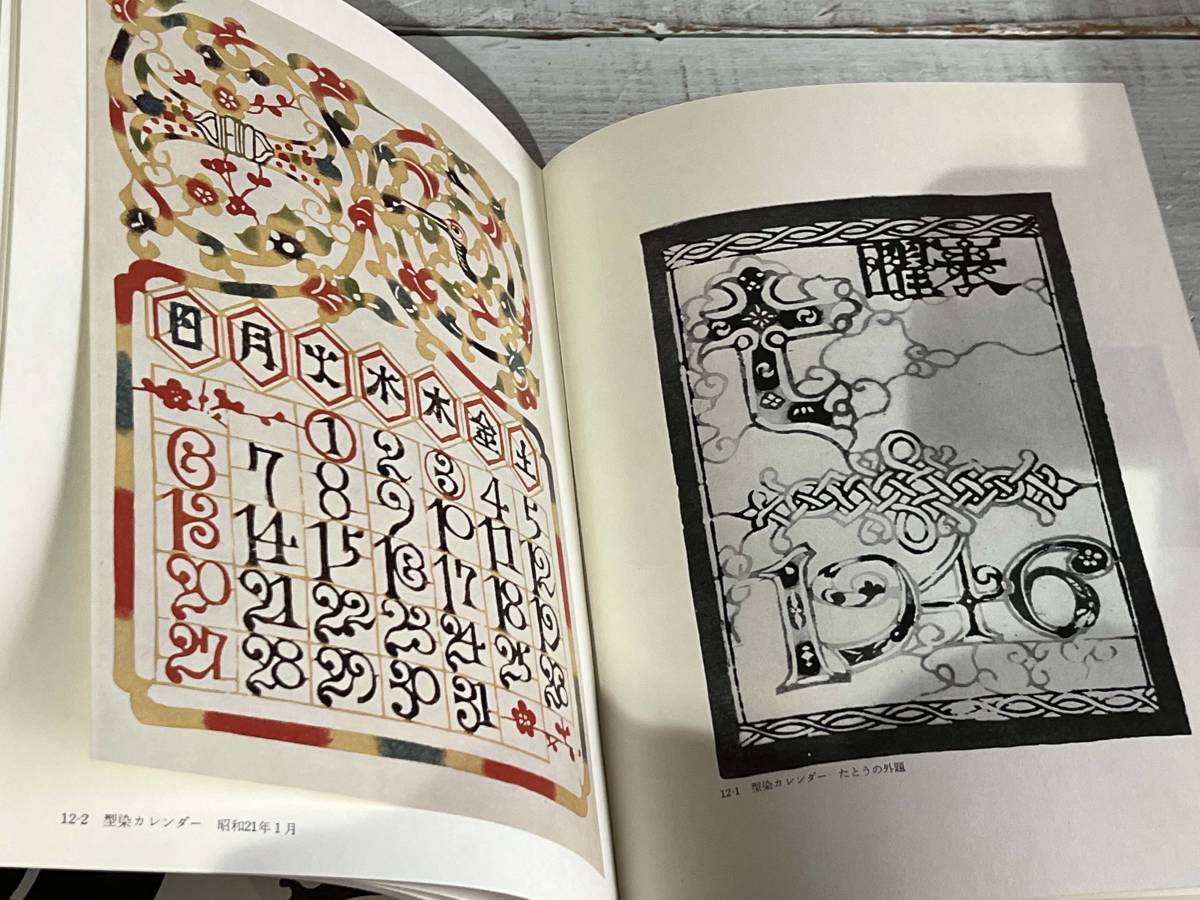 日 月 火 水 木 金 土
1 2 3 4 5
6 7 8 9 10 11 12
13 14 15 16 17 18 19
20 21 22 23 24 25 26
27 28 29 30 31
12-2 型染カレンダー 昭和21年1月
七曜表
1946
12-1 型染カレンダー たとうの外題